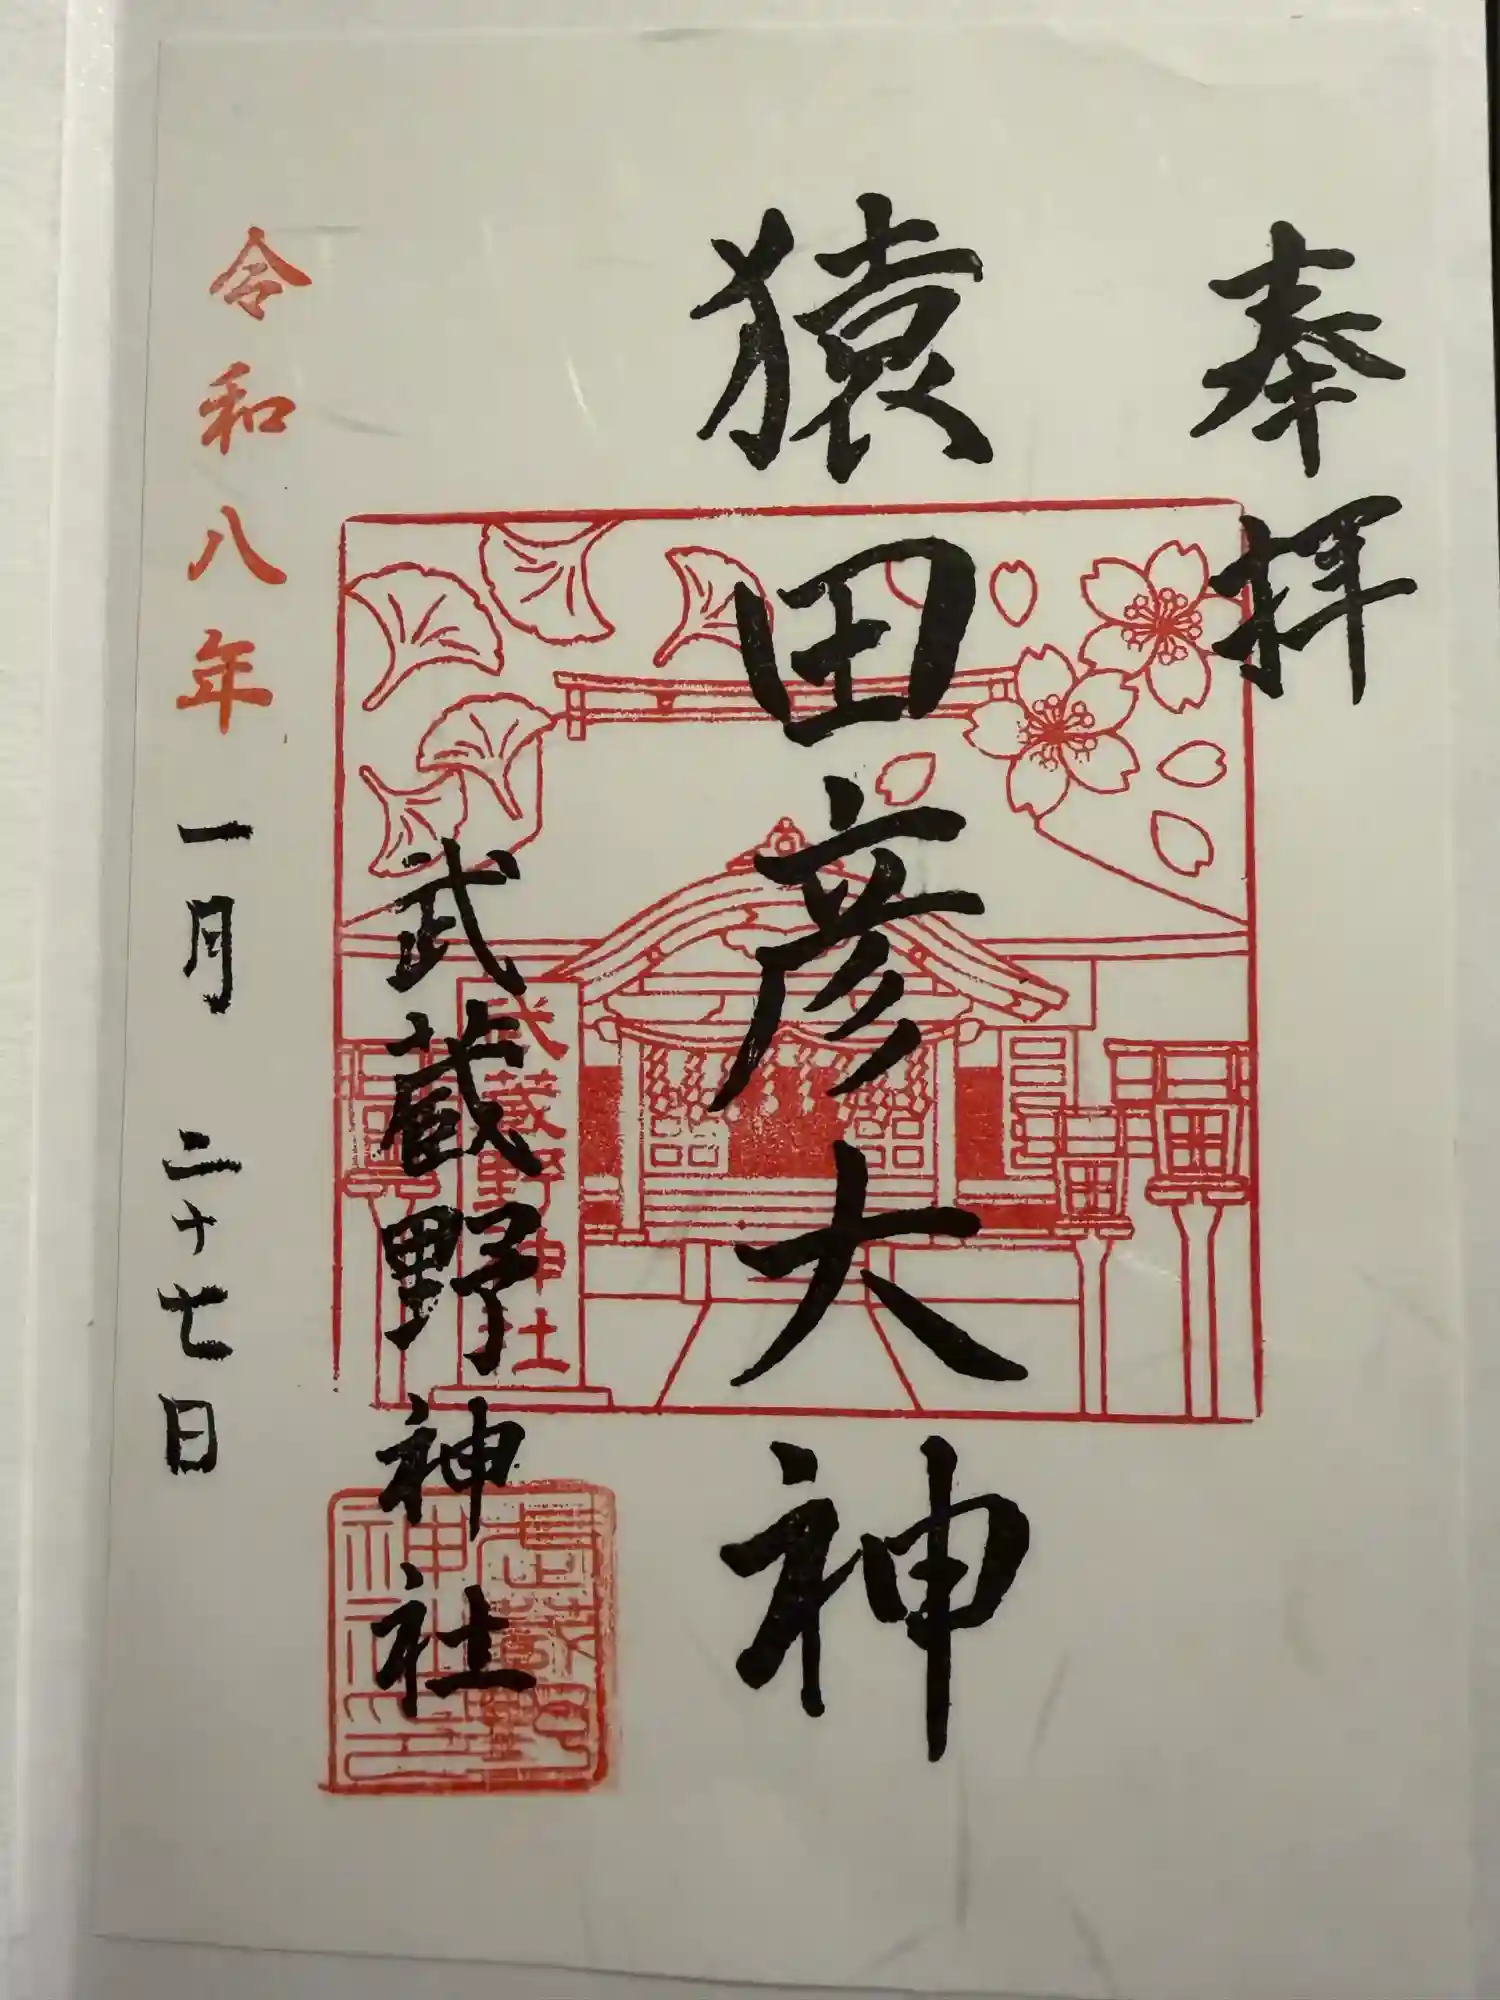 奉拝
猿田彦大神
武蔵野神社
武蔵野神社
令和八年一月二十七日